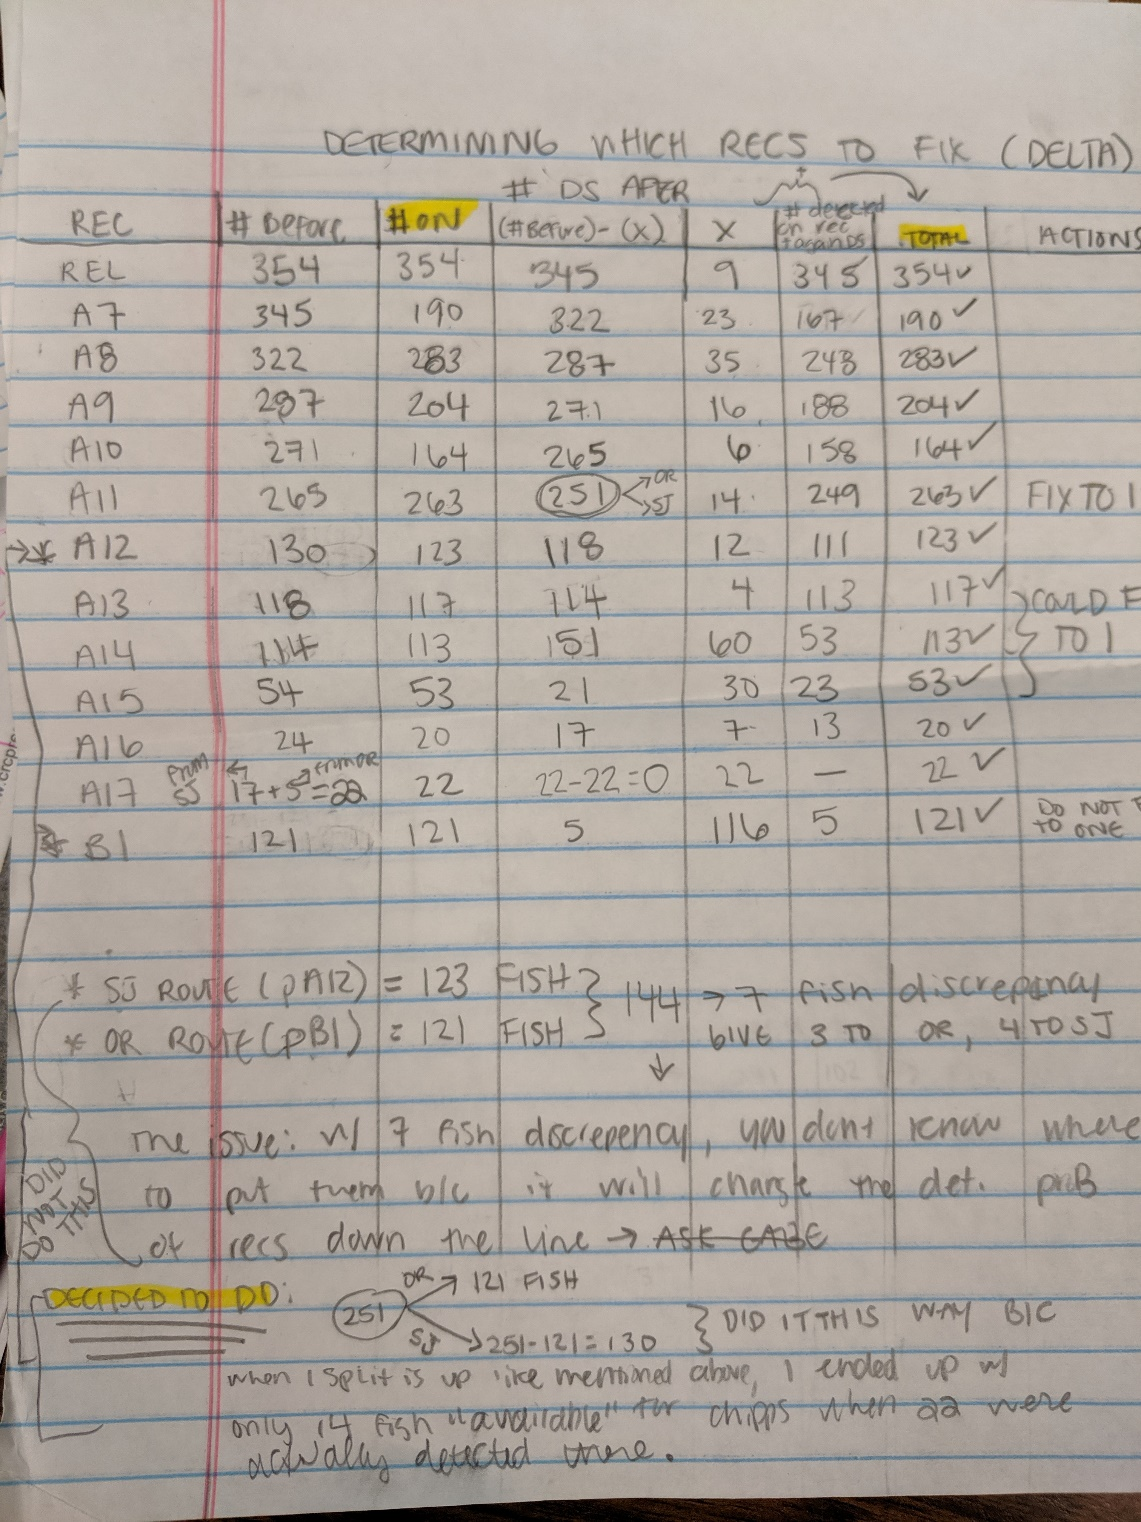 DETERMINING WHICH RECS TO FIX (DELTA)
# DS APER
REC # Before # ON (#Before) - (X) X # detected on rec + TOTAL ACTIONS
REL 354 354 345 9 345 354✓
A7 345 190 322 23 167 190✓
A8 322 283 287 35 248 283✓
A9 287 204 271 16 188 204✓
A10 271 164 265 6 158 164✓
A11 265 263 251 OR SJ 14 249 263✓ FIX TO 1
→* A12 130 123 118 12 111 123✓
A13 118 117 114 4 113 117✓ COULD F
A14 114 113 151 60 53 113✓ TO 1
A15 54 53 21 30 23 53✓
A16 24 20 17 7 13 20✓
A17 from SJ 17+5=22 from OR 22 22-22=0 22 — 22✓
* B1 121 121 5 116 5 121✓ DO NOT F TO ONE
* SJ ROUTE (pA12) = 123 FISH } 144 → 7 fish discrepancy
* OR ROUTE (pB1) = 121 FISH GIVE 3 TO OR, 4 TO SJ
↓
DID NOT DO THIS
The issue: w/ 7 fish discrepency, you dont know where
to put them b/c it will change the det. prob
of recs down the line → ASK GABE
DECIDED TO DO: 251 OR → 121 FISH
SJ → 251-121=130 } DID IT THIS WAY B/C
when I split is up like mentioned above, I ended up w/
only 14 fish "available" for chipps when 22 were
actually detected there.